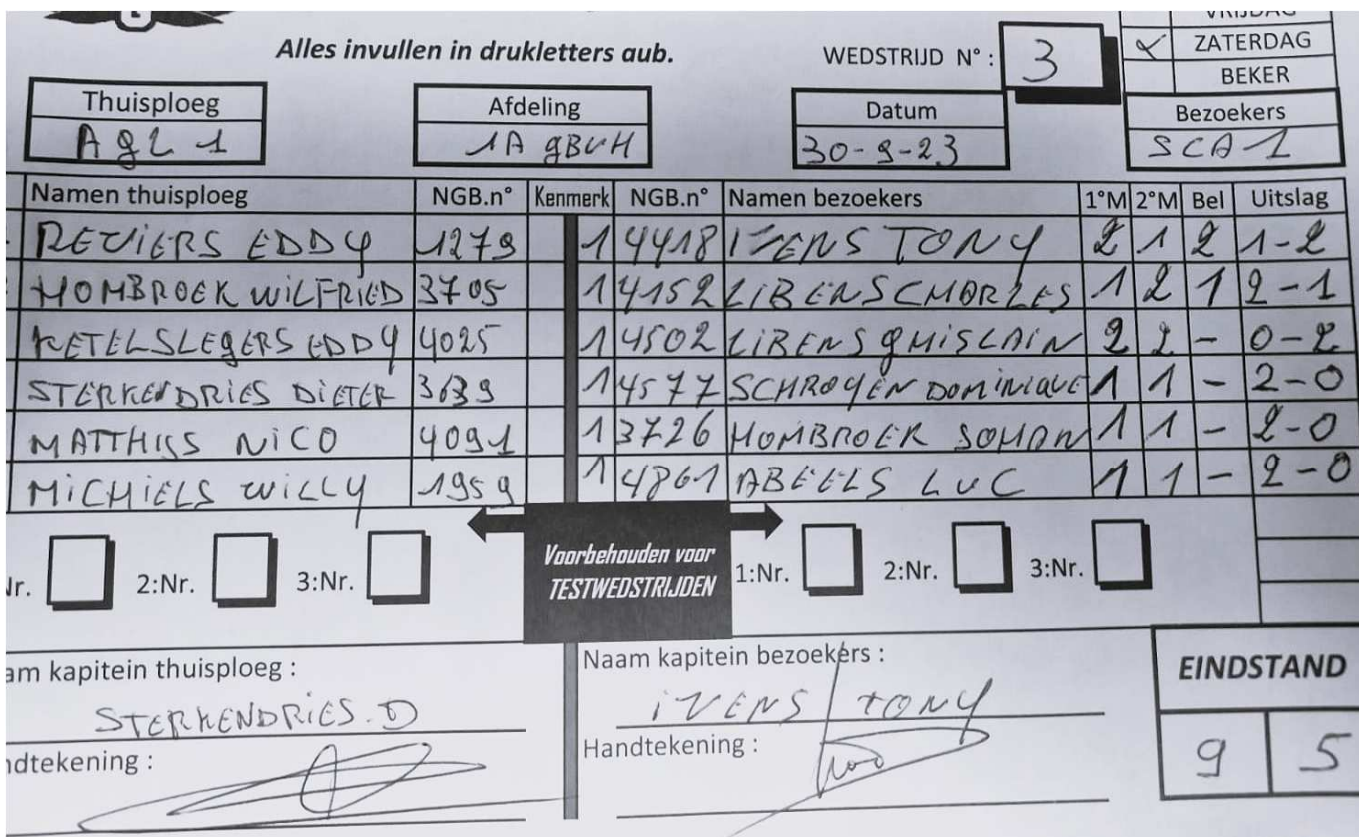 L
VRIJDAG
Alles invullen in drukletters aub.
WEDSTRIJD N° : 3
X ZATERDAG
BEKER
Thuisploeg Afdeling Datum Bezoekers
AGL 1 1A GBVH 30-9-23 SCA 1
Namen thuisploeg NGB.n° Kenmerk NGB.n° Namen bezoekers 1°M 2°M Bel Uitslag
REVIERS EDDY 1279 1 4418 IVENS TONY 2 1 2 1-2
HOMBROEK WILFRIED 3705 1 4152 LIBENS CHARLES 1 2 1 2-1
KETELSLEGERS EDDY 4025 1 4502 LIBENS GHISLAIN 2 2 - 0-2
STERKENDRIES DIETER 3639 1 4577 SCHROYEN DOMINIQUE 1 1 - 2-0
MATTHIJS NICO 4091 1 3726 HOMBROEK JOHAN 1 1 - 2-0
MICHIELS WILLY 1959 1 4861 ABEELS LUC 1 1 - 2-0
Nr. 2:Nr. 3:Nr. Voorbehouden voor 1:Nr. 2:Nr. 3:Nr.
TESTWEDSTRIJDEN
am kapitein thuisploeg : Naam kapitein bezoekers : EINDSTAND
STERKENDRIES.D IVENS TONY
ndtekening : Handtekening : 9 5